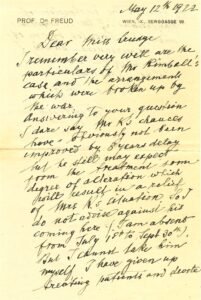 May 12th 1922
PROF. Dr FREUD
WIEN, IX. BERGGASSE 19.
Dear Miss
I remember very well are the
particulars of Mr Kimball's
case and the arrangements
which were broken up by
the war.
Answering to your question
I dare say Mr K's chances
have obviously not been
improved by 8 years delay
but he still may expect
from the treatment some
degree of alteration which
will result in a relief
of Mrs K's situation. So I
do not advise against his
coming here (I am absent
from July 1st to Sept 30th),
but I cannot take him
myself. I have given up
treating patients and devote